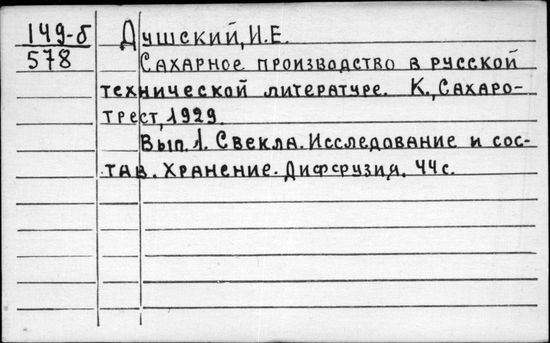 149-б Душский, И.Е.
578 Сахарное производство в русской
технической литературе. К., Сахаро-
трест, 1929.
Вып. 1. Свекла. Исследование и сос-
тав. Хранение. Диффузия. 44с.